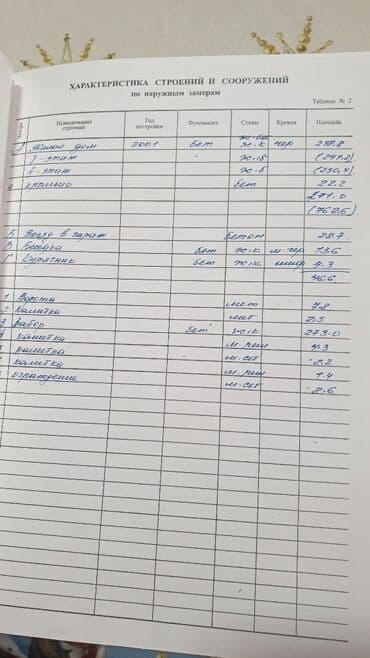 ХАРАКТЕРИСТИКА СТРОЕНИЙ И СООРУЖЕНИЙ
по наружным замерам
Таблица № 2
Наименование строений Год постройки Фундамент Стены Кровля Площадь
Жилой дом 2001 бет ж-к чер
I-этаж (241.2)
II-этаж ж-б (250,4)
а крыльцо бет 22.2
271.0
(762,6)
Б Вход в гараж бетон 28.7
В Беседка бет ж/к м-чер 13.6
Г Курятник бет ж/к шифер 4.3
46,6
1 Ворота мет 7.8
2 Калитка мет 2,5
3 Забор бет ж/к 273.0
калитка м.реш 4.3
калитка м.сет 2.2
калитка м.реш 1.4
ограждение м-сет 8,6